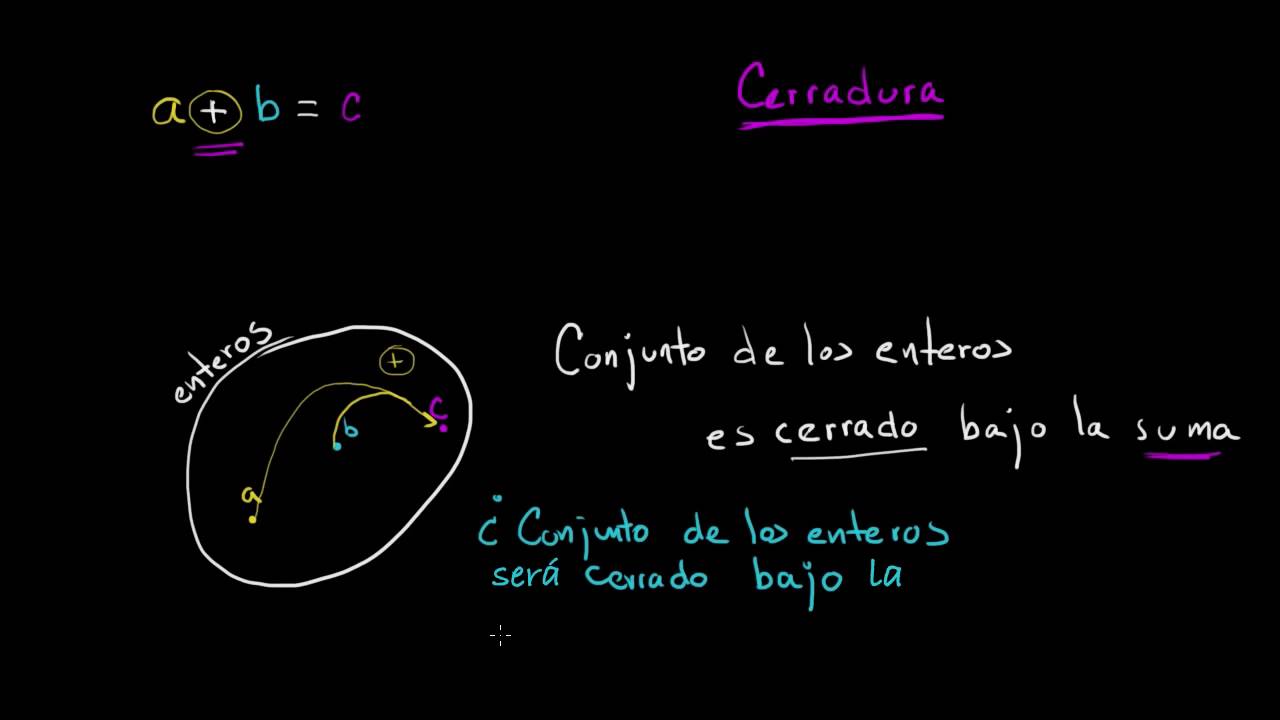 a + b = c
Cerradura
enteros
+
c
b
a
Conjunto de los enteros
es cerrado bajo la suma
¿Conjunto de los enteros
será cerrado bajo la